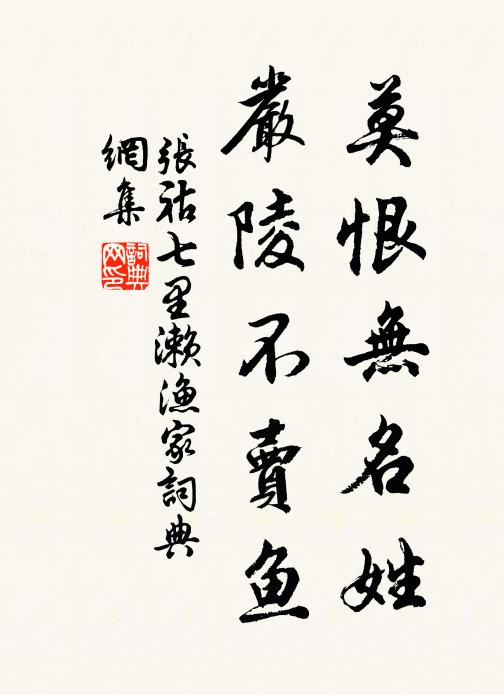 莫恨無名姓
嚴陵不賣魚
張祜七里瀨漁家詞典
網集
詞典
网印